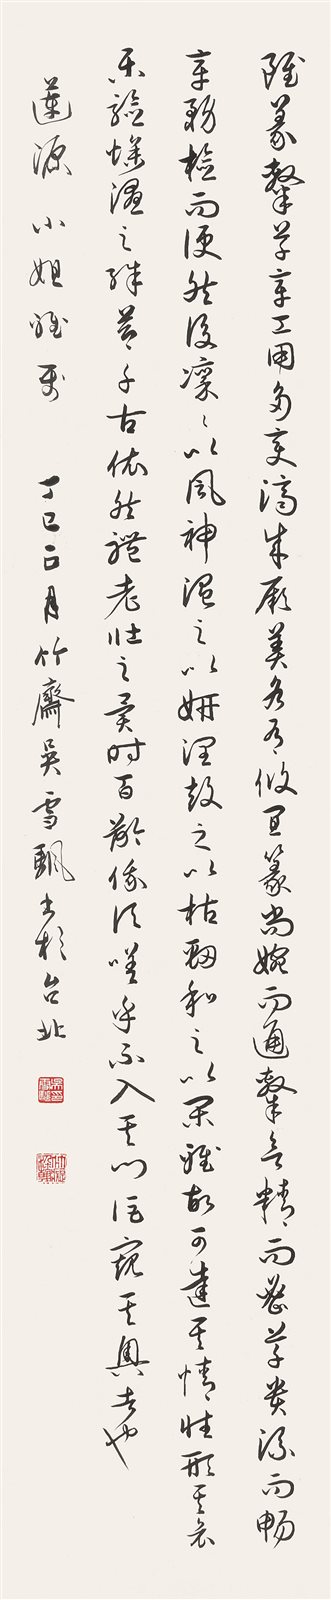 雖篆隸草章工用多變濟成厥美各有攸宜篆尚婉而通隸欲精而密草貴流而暢
章務檢而便然後凜之以風神溫之以妍潤鼓之以枯勁和之以閑雅故可達其情性形其哀
樂驗燥濕之殊節千古依然體老壯之異時百齡俄頃嗟乎不入其門詎窺其奧者也
蓮源小姐雅正 丁巳正月竹齋吳雪飄書於台北